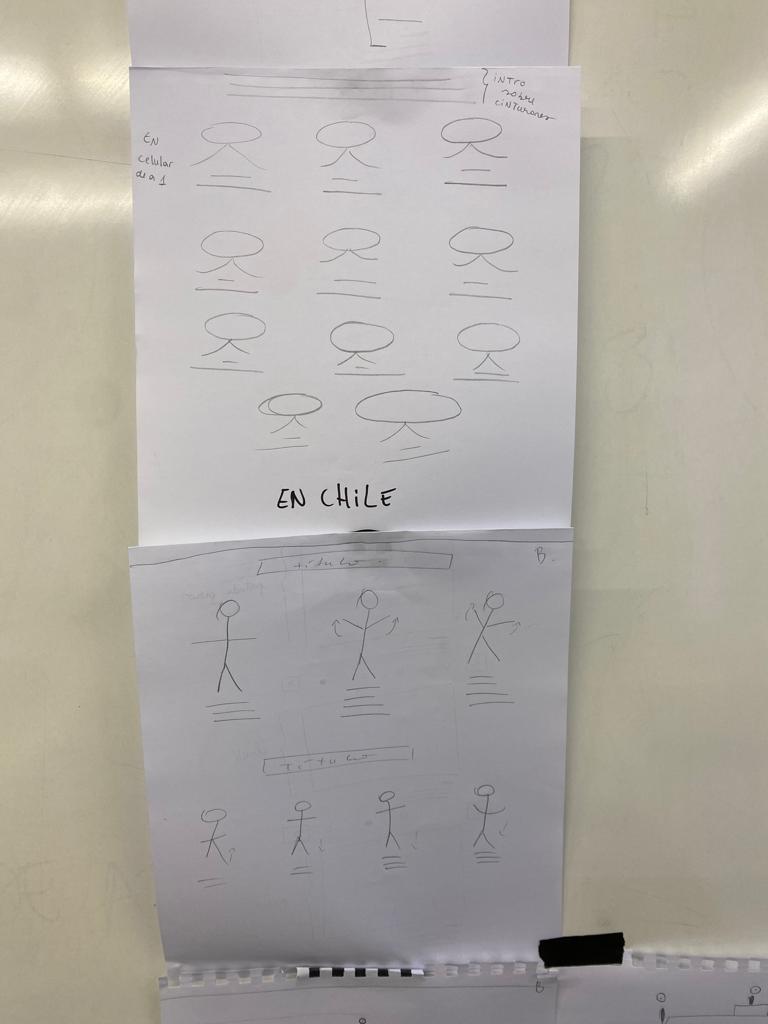 iNTRO
sobre
ciNTURONES
EN
celular
de a 1
EN CHiLE
B.
título
título
B